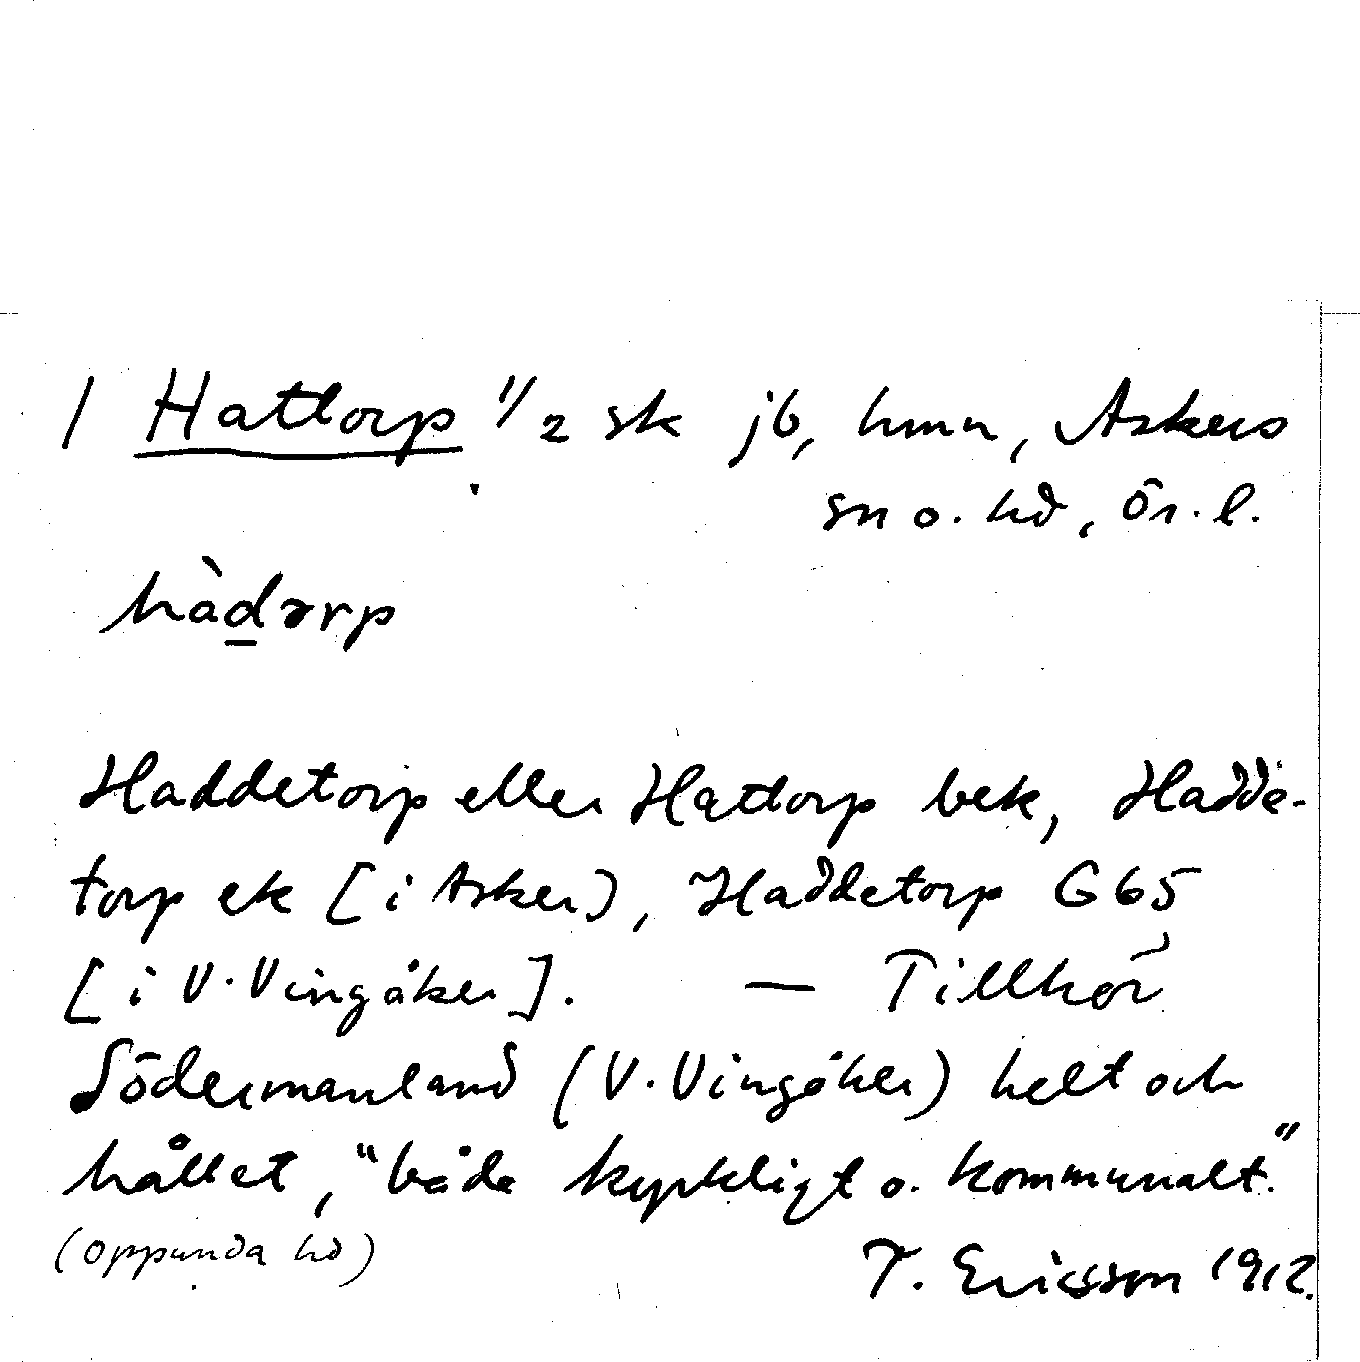 1 Hattorp 1/2 sk jb, hmn, Askers
sn o. hd, Ör. l.
hàdərp
Haddetorp eller Hattorp bek, Hadde-
torp ek [i Asker], Haddetorp G65
[i V. Vingåker]. — Tillhör
Södermanland (V. Vingåker) helt och
hållet, "både kyrkligt o. kommunalt."
(Oppunda hd)
T. Ericsson 1912.